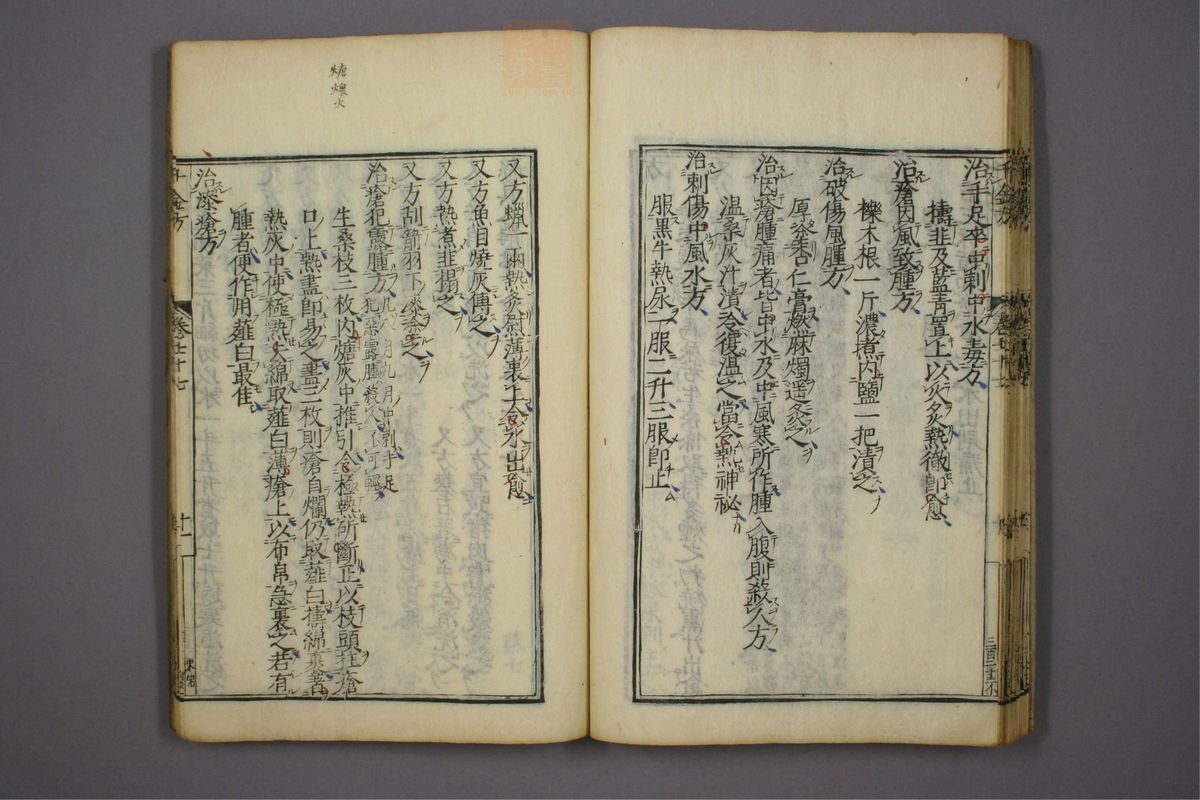 治手足卒中刺中水毒方
擣韭及藍青置上以火炙熱徹即愈
治瘡因風致腫方
櫟木根一斤濃揩內鹽一把漬之
治破傷風腫方
厚塗杏仁膏燃麻燭遥灸之
治因瘡腫痛者皆中水及中風寒所作腫入腹則殺人方
温桑灰汁漬冷復温之當令熱神祕
治刺傷中風水方
服黑牛熱尿一服二升三服即止
又方蠟一兩熱灸熨薄裹上令水出愈
又方魚目燒灰傅之
又方熱煮韭搨之
又方刮箭羽下漆塗之
治瘡犯露腫方凡八月九月中刺手足
犯惡露腫殺人不可輕
生桑枝三枚內煻灰中推引令極熱斫斷正以枝頭拄瘡
口上熱盡即易之盡三枚則瘡自爛仍取薤白擣綿裹著
熱灰中使極熱去綿取薤白薄瘡上以布帛急裹之若有
腫者便作用薤白最佳
治漆瘡方
千金方
卷二十七
十一
煻煨火